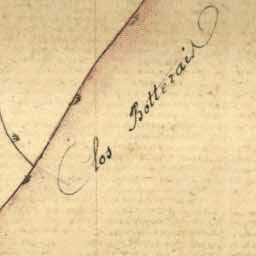 Clos Botterais